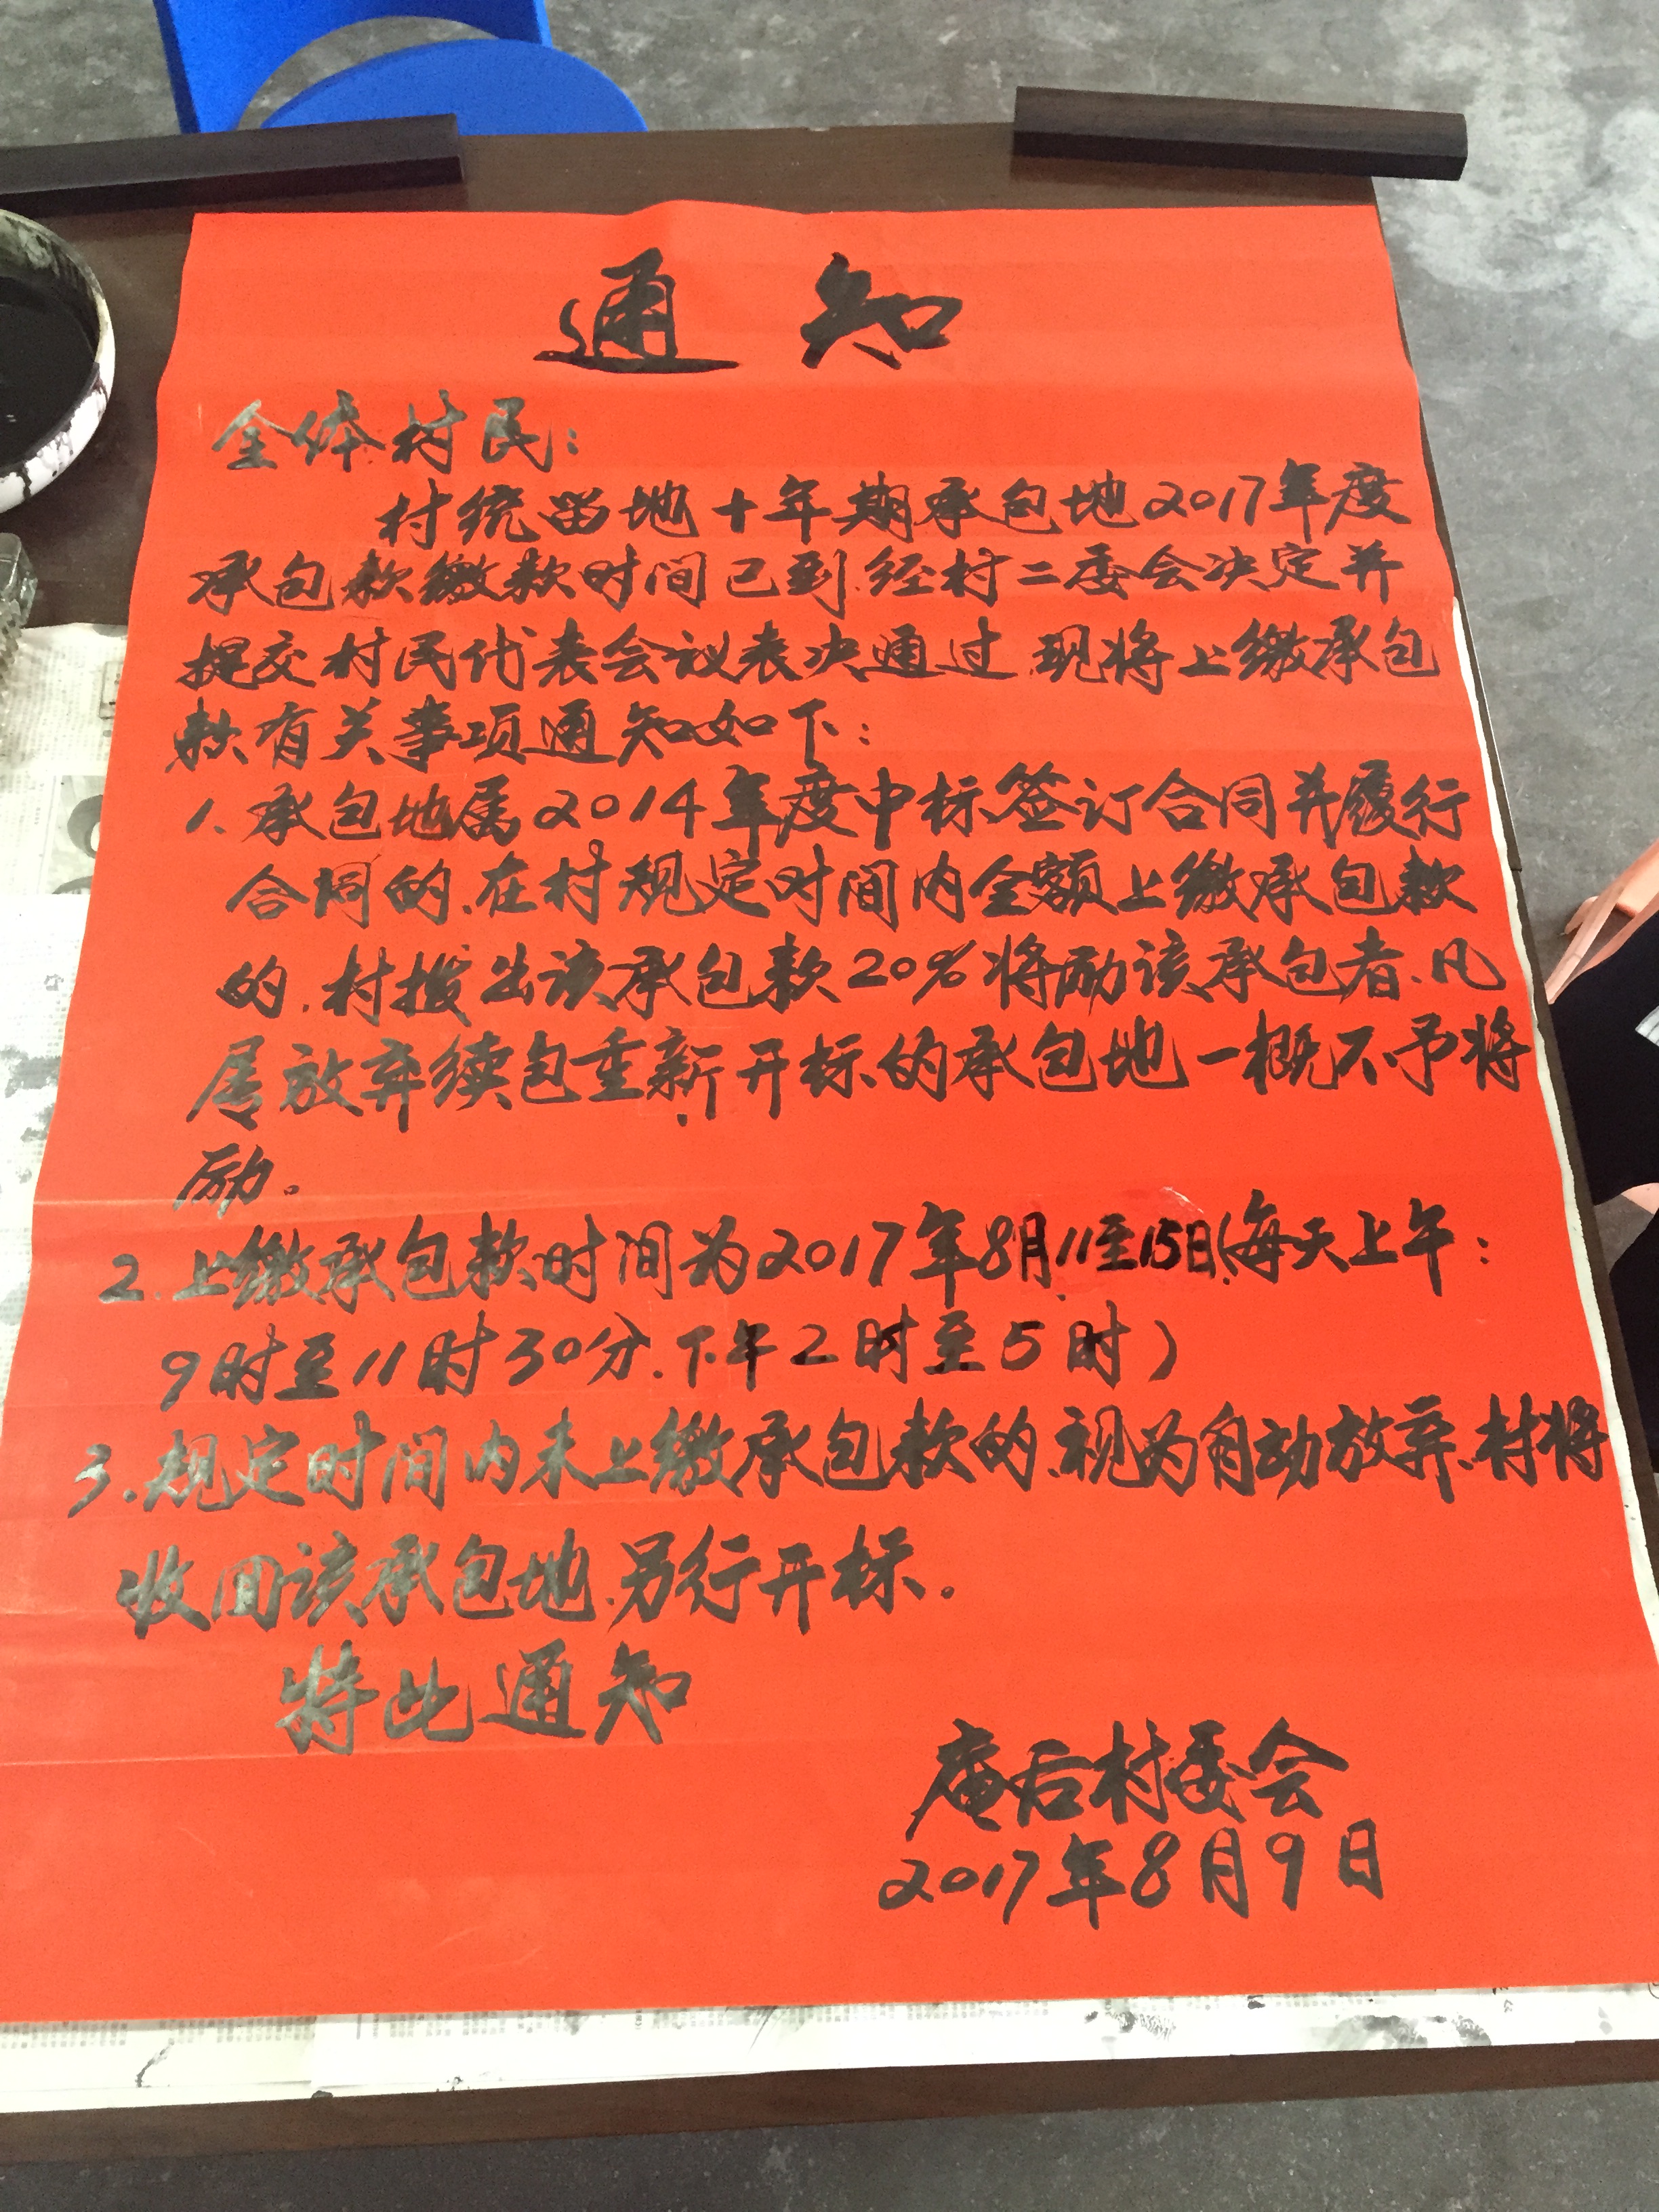 通知
全体村民:
村统留地十年期承包地2017年度
承包款缴款时间已到.经村二委会决定并
提交村民代表会议表决通过.现将上缴承包
款有关事项通知如下:
1.承包地属2014年度中标签订合同并履行
合同的.在村规定时间内全额上缴承包款
的.村拨出该承包款20%将励该承包者.凡
属放弃续包重新开标的承包地一概不予将
励。
2.上缴承包款时间为2017年8月11至15日(每天上午:
9时至11时30分.下午2时至5时)
3.规定时间内未上缴承包款的.视为自动放弃.村将
收回该承包地.另行开标。
特此通知
庵后村委会
2017年8月9日